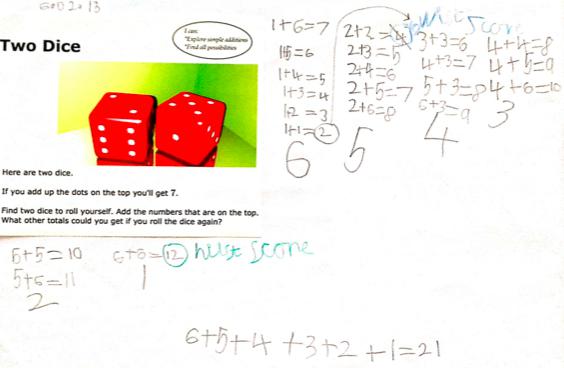 Two Dice
I can:
*Explore simple additions
*Find all possibilities
Here are two dice.
If you add up the dots on the top you'll get 7.
Find two dice to roll yourself. Add the numbers that are on the top.
What other totals could you get if you roll the dice again?
1+6=7
1+5=6
1+4=5
1+3=4
1+2=3
1+1=2
6
2+2=4
2+3=5
2+4=6
2+5=7
2+6=8
5
Score
3+3=6
4+3=7
5+3=8
6+3=9
4
4+4=8
4+5=9
4+6=10
3
5+5=10
5+6=11
2
6+6=12 hist score
1
6+5+4+3+2+1=21